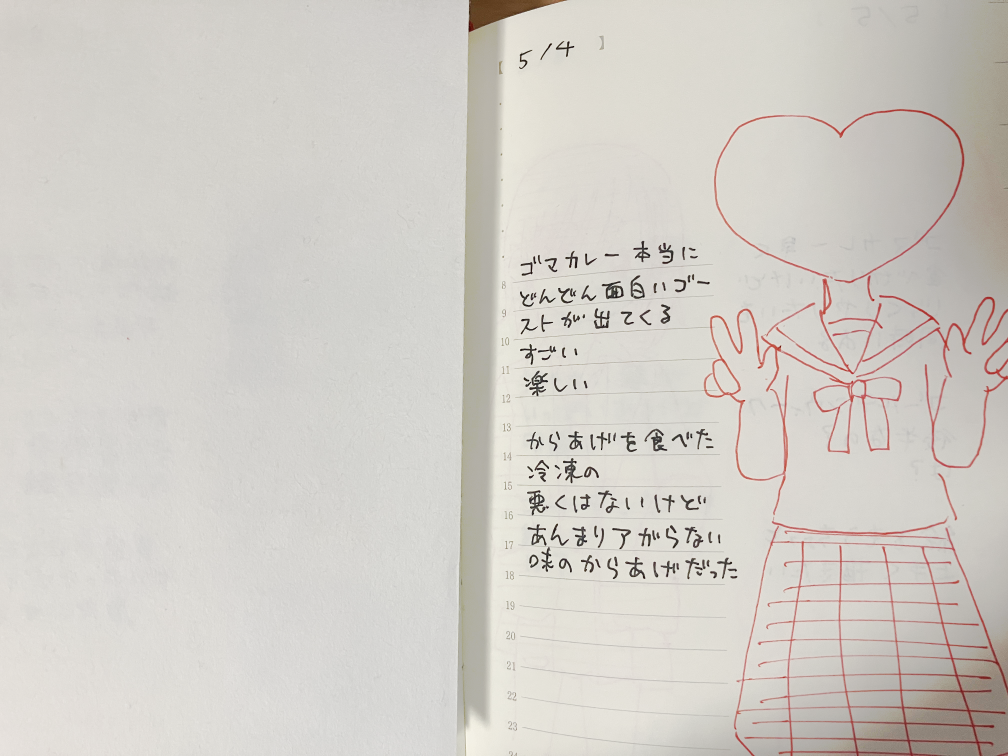 5/4
ゴマカレー本当に
どんどん面白いゴー
ストが出てくる
すごい
楽しい
からあげを食べた
冷凍の
悪くはないけど
あんまりアがらない
味のからあげだった
8
9
10
11
12
13
14
15
16
17
18
19
20
21
22
23